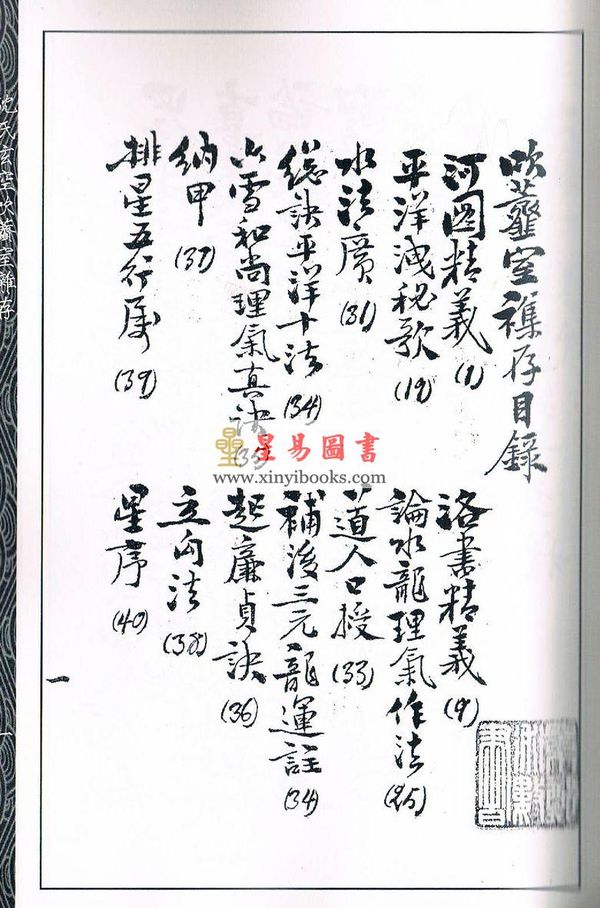 吹虀室襍存目錄
河圖精義 (1)
洛書精義 (9)
平洋洩秘歌 (19)
論水龍理氣作法 (25)
水法廣 (31)
道人口授 (33)
總訣平洋十法 (34)
補後三元龍運註 (34)
六雪和尚理氣真訣 (35)
起廉貞訣 (36)
納甲 (37)
立向法 (38)
排星五行屬 (39)
星序 (40)
一
沈氏玄空吹虀室雜存
一
星易圖書
www.xinyibooks.com